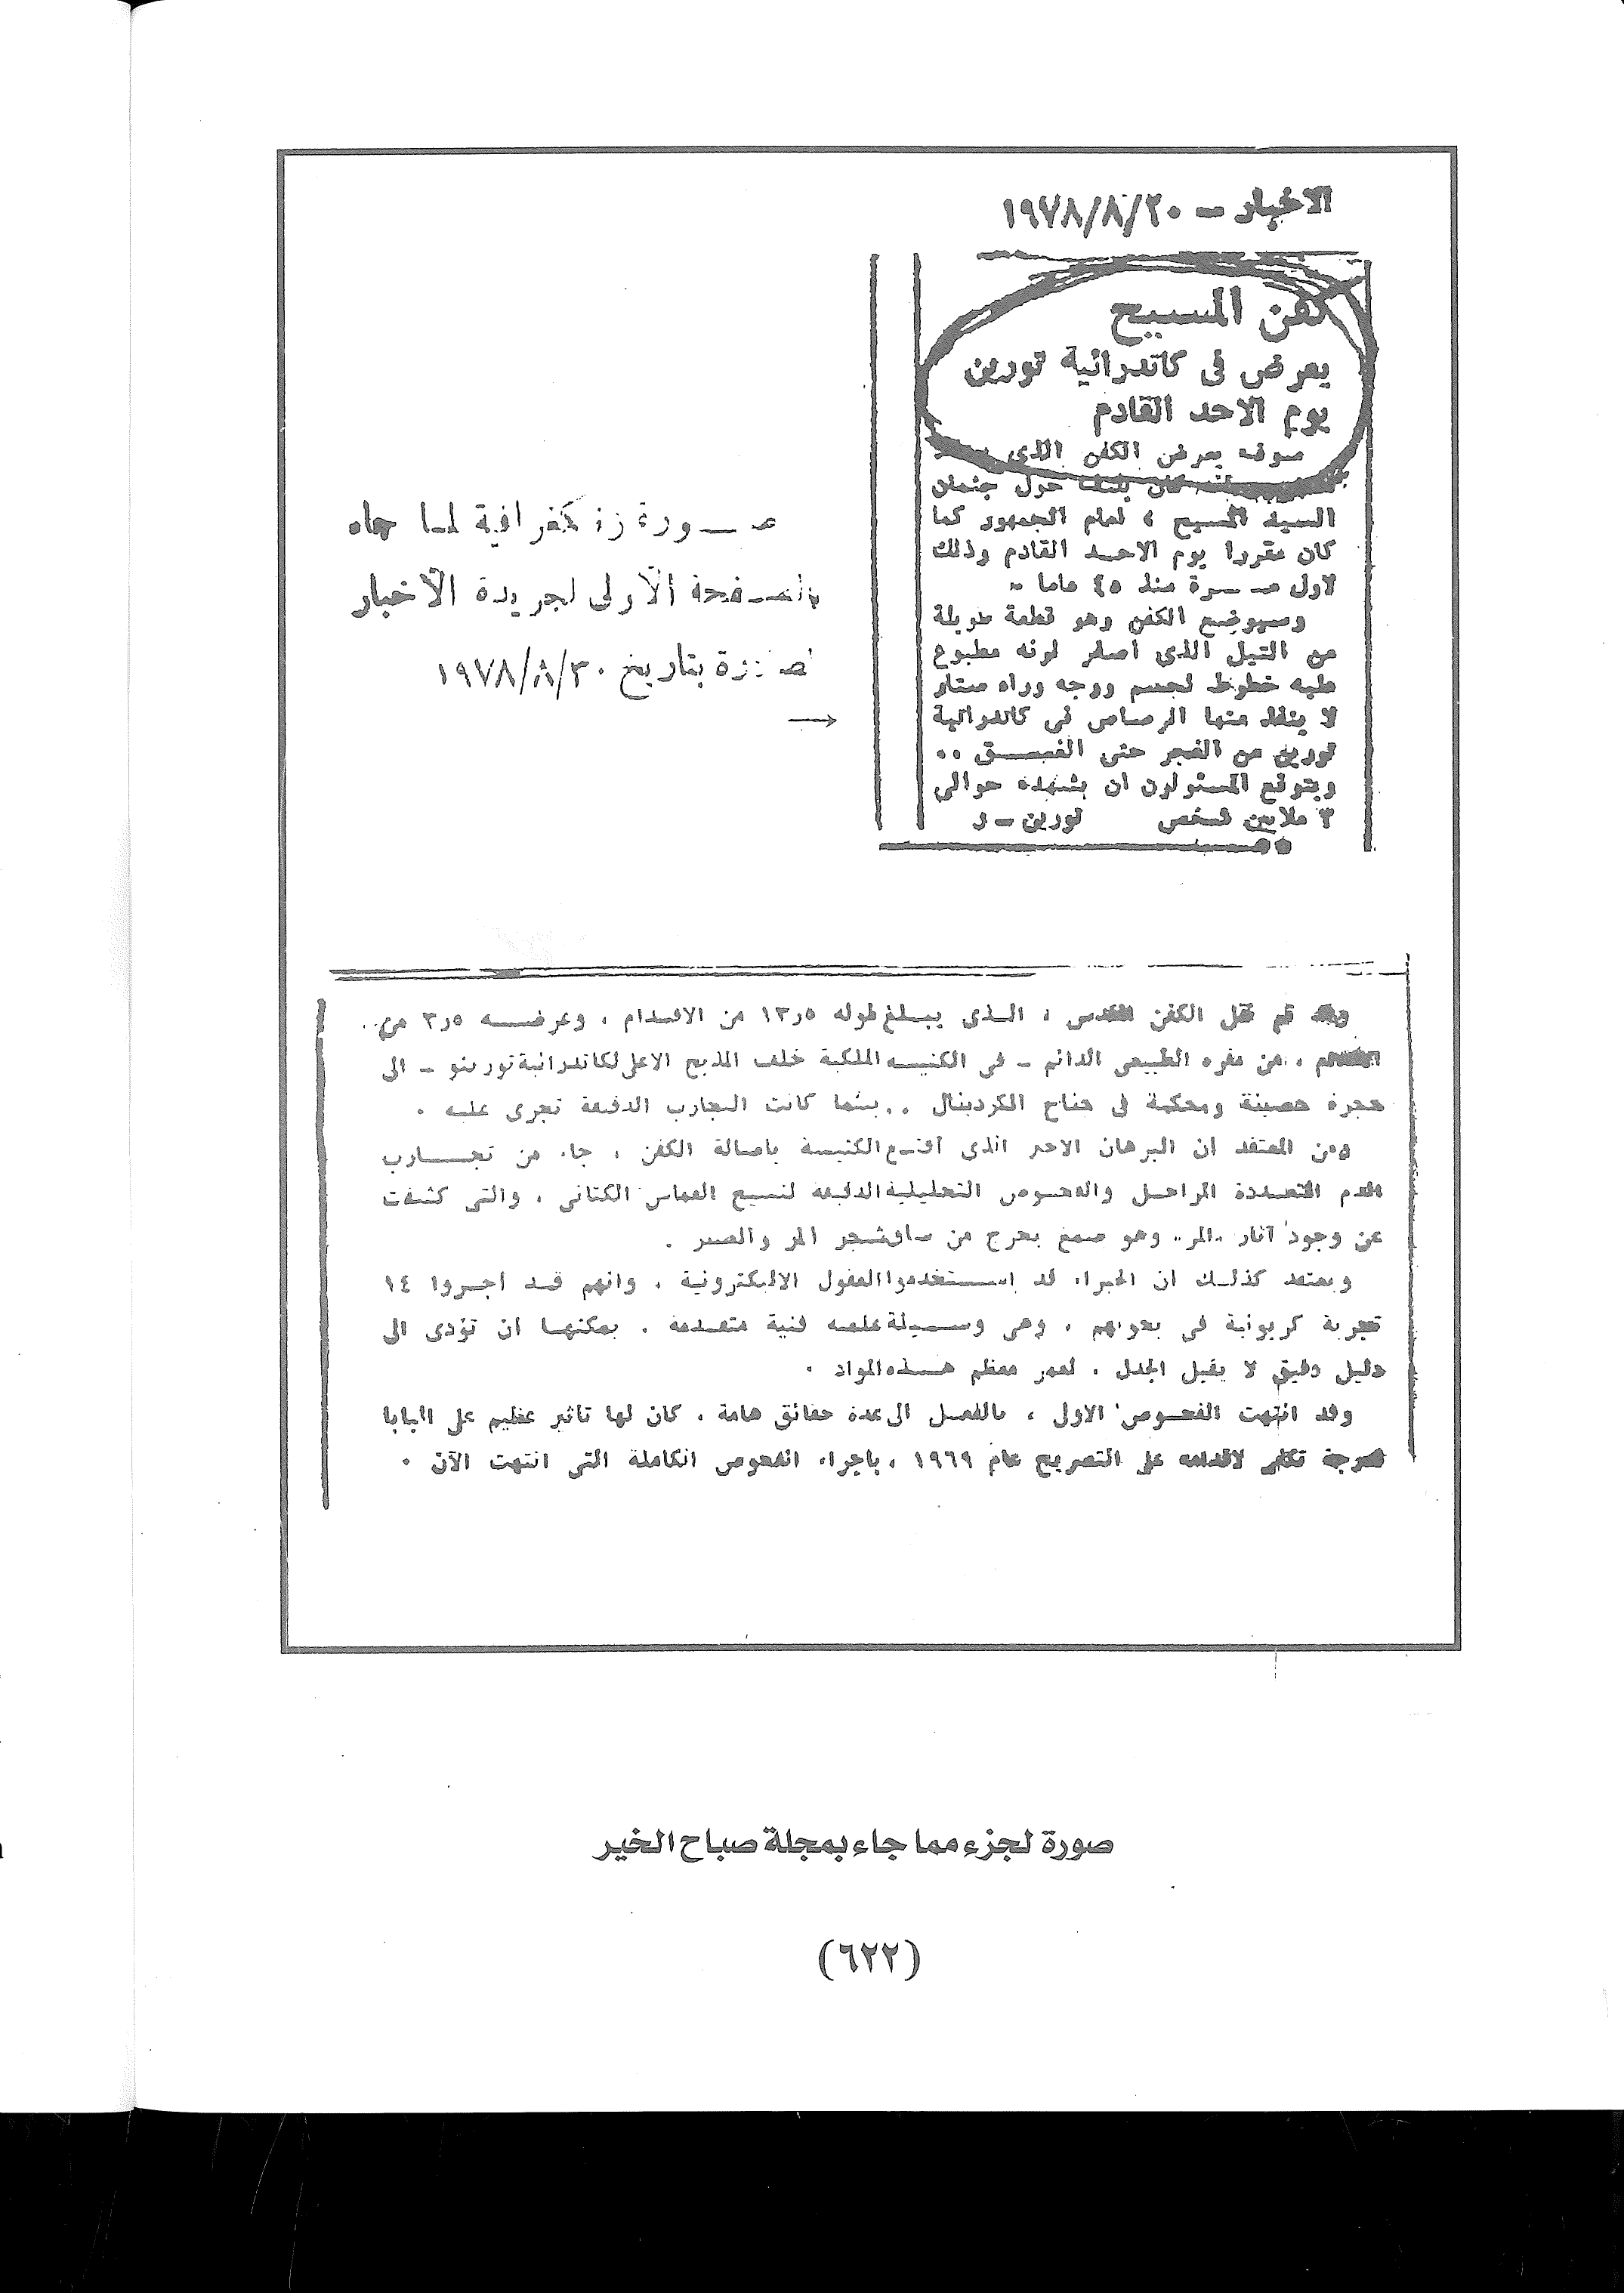 الاخبار - ١٩٧٨/٨/٢٠
كفن المسيح
يعرض فى كاتدرائية تورين
يوم الاحد القادم
سوف يعرض الكفن الذى
كان يلتف حول جثمان
السيد المسيح ، امام الجمهور كما
كان مقررا يوم الاحد القادم وذلك
لاول مرة منذ ٤٥ عاما .
وسيوضع الكفن وهو قطعة طويلة
من التيل الذى اصفر لونه مطبوع
عليه خطوط لجسم ووجه وراء ستار
لا ينفذ منها الرصاص فى كاتدرائية
تورين من الفجر حتى الغسق ..
ويتوقع المسئولون ان يشهده حوالى
٣ ملايين شخص تورين - ر
صورة زنكغرافية لما جاء
بالصفحة الأولى لجريدة الأخبار
بتاريخ ١٩٧٨/٨/٣٠
وقد تم نقل الكفن المقدس ، الذى يبلغ طوله ١٣٫٥ من الاقدام ، وعرضه ٣٫٥ من
، من مقره الطبيعى الدائم - فى الكنيسه الملكية خلف المذبح الاعلى لكاتدرائية تورينو - الى
حجرة حصينة ومحكمة فى جناح الكردينال .. بينما كانت التجارب الدقيقة تجرى عليه .
ومن المعتقد ان البرهان الاخير الذى أقنع الكنيسة بأصالة الكفن ، جاء من تجارب
الدم المتعددة المراحل والفحوص التحليلية الدقيقة لنسيج القماش الكتانى ، والتى كشفت
عن وجود آثار "المر" وهو صمغ يخرج من ساق شجر المر والصبر .
ويعتقد كذلك ان الخبراء قد استخدموا العقول الاليكترونية ، وانهم قد اجروا ١٤
تجربة كربونية فى بحوثهم ، وهى وسيلة علمية فنية متقدمة . يمكنها ان تؤدى الى
دليل دقيق لا يقبل الجدل ، لعمر معظم هذه المواد .
وقد انتهت الفحوص الاولى ، بالفعل الى عدة حقائق هامة ، كان لها تاثير عظيم على البابا
لدرجة تكفى لاقدامه على التصريح عام ١٩٦٩ ، باجراء الفحوص الكاملة التى انتهت الآن .
صورة لجزء مما جاء بمجلة صباح الخير
(٦٢٢)